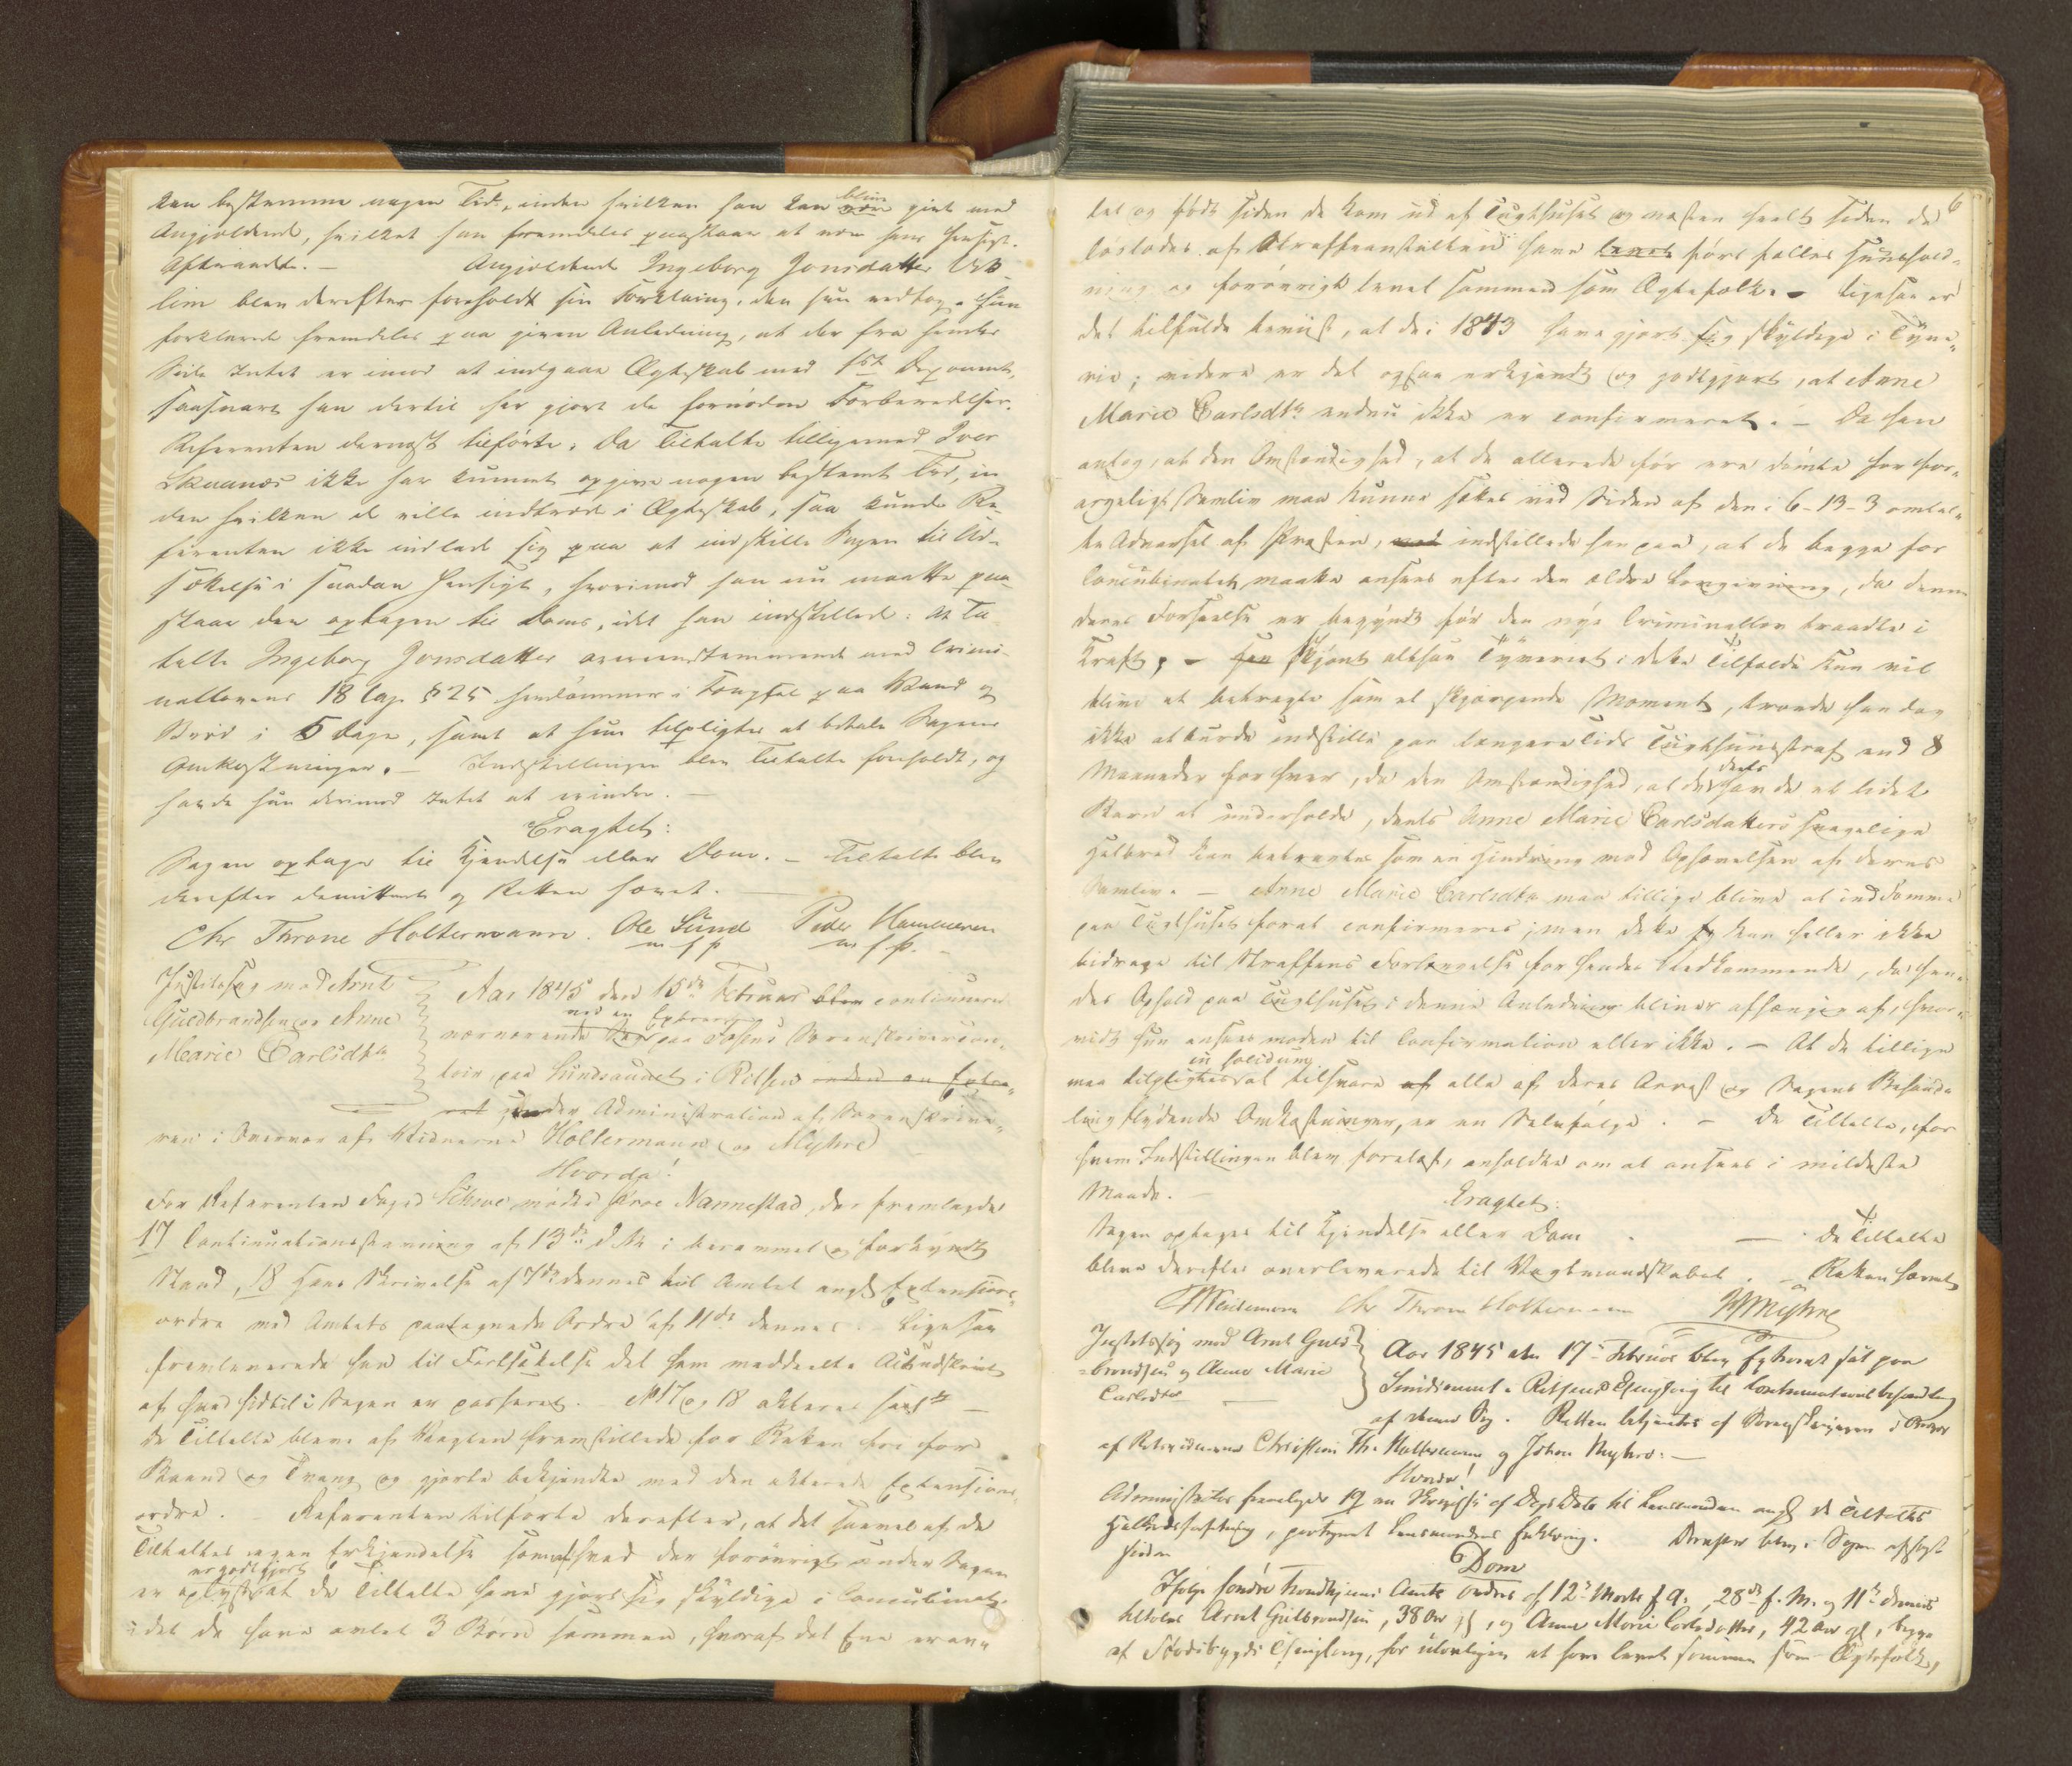 kan bestemme nogen Tid, inden hvilken han kan blive givt med
Angjældende, hvilket han fremdeles paastaar at være hans Hensigt.
Aftraadte. — Angjældende Ingeborg Jonsdatter
blev derefter foreholdt sin Forklaring, den hun vedtog. Hun
forklarede fremdeles paa given Anledning, at der fra hendes
Side Intet er imod at indgaae Ægteskab med 1ste Deponent,
saasnart han dertil har gjort de fornødne Forberedelser.
Referenten dernæst tilførte: Da Tiltalte tilligemed Iver
Skaanæs ikke har kunnet opgive nogen bestemt Tid, in-
den hvilken de ville indtræde i Ægteskab, saa kunde Re-
ferenten ikke indlade sig paa at indstille Sagen til Ud-
sættelse i saadan Hensigt, hvorimod han nu maatte paa-
staae den optagen til Doms, idet han indstillede: At Til-
talte Ingeborg Jonsdatter overensstemmende med Crimi-
nallovens 18 Cap. § 25 hendømmes i Fængsel paa Vand og
Brød i 5 Dage, samt at hun tilpligtes at betale Sagens
Omkostninger. — Indstillingen blev Tiltalte foreholdt, og
havde hun derimod Intet at erindre. —
Eragtet:
Sagen optages til Kjendelse eller Dom. — Tiltalte blev
derefter demitteret og Retten hævet. —
Chr Throne Holtermann. Ole Sund Peder Hammeren
m f p m f p.
Justitssag mod Arnt
Guldbrandsen og Anne
Marie Carlsdtr
Aar 1845 den 15de Februar blev continueret
ved en Extraret
nærværende Sag paa Fosens Sorenskrivercon-
toir paa Sundsaunet i Ritsen under en Extra-
ret under Administration af Sorenskrive-
ren i Overvær af Vidnerne Holtermann og Myhre
Hvorda!
For Referenten Foged mødte Hr Nannestad, der fremlagde
17 Continuationsstævning af 13de d. M. i berammet og forkyndt
Stand, 18 Hans Skrivelse af 7de dennes til Amtet angd. Extensions-
ordre med Amtets paategnede Ordre af 11te dennes. Ligesaa
fremleverede han til Fortsættelse det ham meddeelte Actsudskrivt
af hvad hidtil i Sagen er passeret. No 17 og 18 akteres
De Tiltalte bleve af Vagten fremstillede for Retten fri for
Baand og Tvang og gjorte bekjendte med den akterede Extensions-
ordre. — Referenten tilførte derefter, at det saavel af de
Tiltaltes egen Erkjendelse som af hvad der forøvrigt under Sagen
er godtgjort
er oplyst at de Tiltalte have gjort sig skyldige i Concubinat
idet de have avlet 3 Børn sammen, hvoraf det Ene er av-
6
let og født siden de kom ud af Tugthuset og næsten heelt siden de
løslodes af Straffeanstalten have levet ført fælles Huushold-
ning og forøvrigt levet sammen som Ægtefolk. — Ligesaa er
det tilfulde beviist, at de i 1843 have gjort sig skyldige i Tyve-
rie; videre er det ogsaa erkjendt og godtgjort, at Anne
Marie Carlsdtr endnu ikke er confirmeret. — Da han
antog, at den Omstændighed, at de allerede før ere dømte for for-
argeligt Samliv maa kunne sættes ved Siden af den i 6-13-3 omtal-
te Advarsel af Præsten, indstillede han paa, at de begge for
Concubinatet maatte ansees efter den ældre Lovgivning, da denne
deres Forseelse er begyndt før den nye Criminallov traadte i
Kraft, — skjønt altsaa Tyveriet i dette Tilfælde kun vil
blive at betragte som et skjærpende Moment, troede han dog
ikke at burde indstille paa længere Tids Tugthuusstraf end 8
deels
Maaneder for hver, da den Omstændighed, at de have et lidet
Barn at underholde, deels Anne Marie Carlsdatters svagelige
Helbred kan betragtes som en Hindring mod Ophævelsen af deres
Samliv. — Anne Marie Carlsdtr maa tillige blive at inddømme
paa Tugthuset forat confirmeres; men dette kan heller ikke
bidrage til Straffens Forlængelse for hendes Vedkommende, da hen-
des Ophold paa Tugthuset i denne Anledning bliver afhængig af, hvor-
vidt hun ansees moden til Confirmation eller ikke. — At de tillige
in solidum
maa tilpligtes at tilsvare alle af deres Arrest og Sagens Behand-
ling flydende Omkostninger, er en Selvfølge. — De Tiltalte, for
hvem Indstillingen blev forelæst, anholdte om at ansees i mildeste
Maade. —
Eragtet:
Sagen optages til Kjendelse eller Dom. — De Tiltalte
bleve derefter overleverede til Vagtmandskabet. — Retten hævet
Chr Throne Holtermann Myhre
Justitssag mod Arnt Guld-
brandsen og Anne Marie
Carlsdtr —
Aar 1845 den 17de Februar blev Extraret sat paa
i Ritsens Thinglaug til Continuationsbehandling
af denne Sag. Retten betjentes af Sorenskriveren i Overvær
af Retsvidnerne Christian Th. Holtermann og Johan Myhre. —
Hvorda!
Administrator fremlagde 19 en Skrivelse af Dags Dato til Lensmanden angd. de Tiltaltes
, paategnet Lensmandens Erklæring. Derefter blev i Sagen afsagt
saadan
Dom
Ifølge søndre Trondhjems Amts Ordres af 12te Marts f. A., 28de f. M. og 11te dennes
tiltales Arnt Guldbrandsen, 38 Aar gl, og Anne Marie Carlsdatter, 42 Aar gl, begge
af Stadsbygdens Thinglaug, for ulovligen at have levet sammen som Ægtefolk,